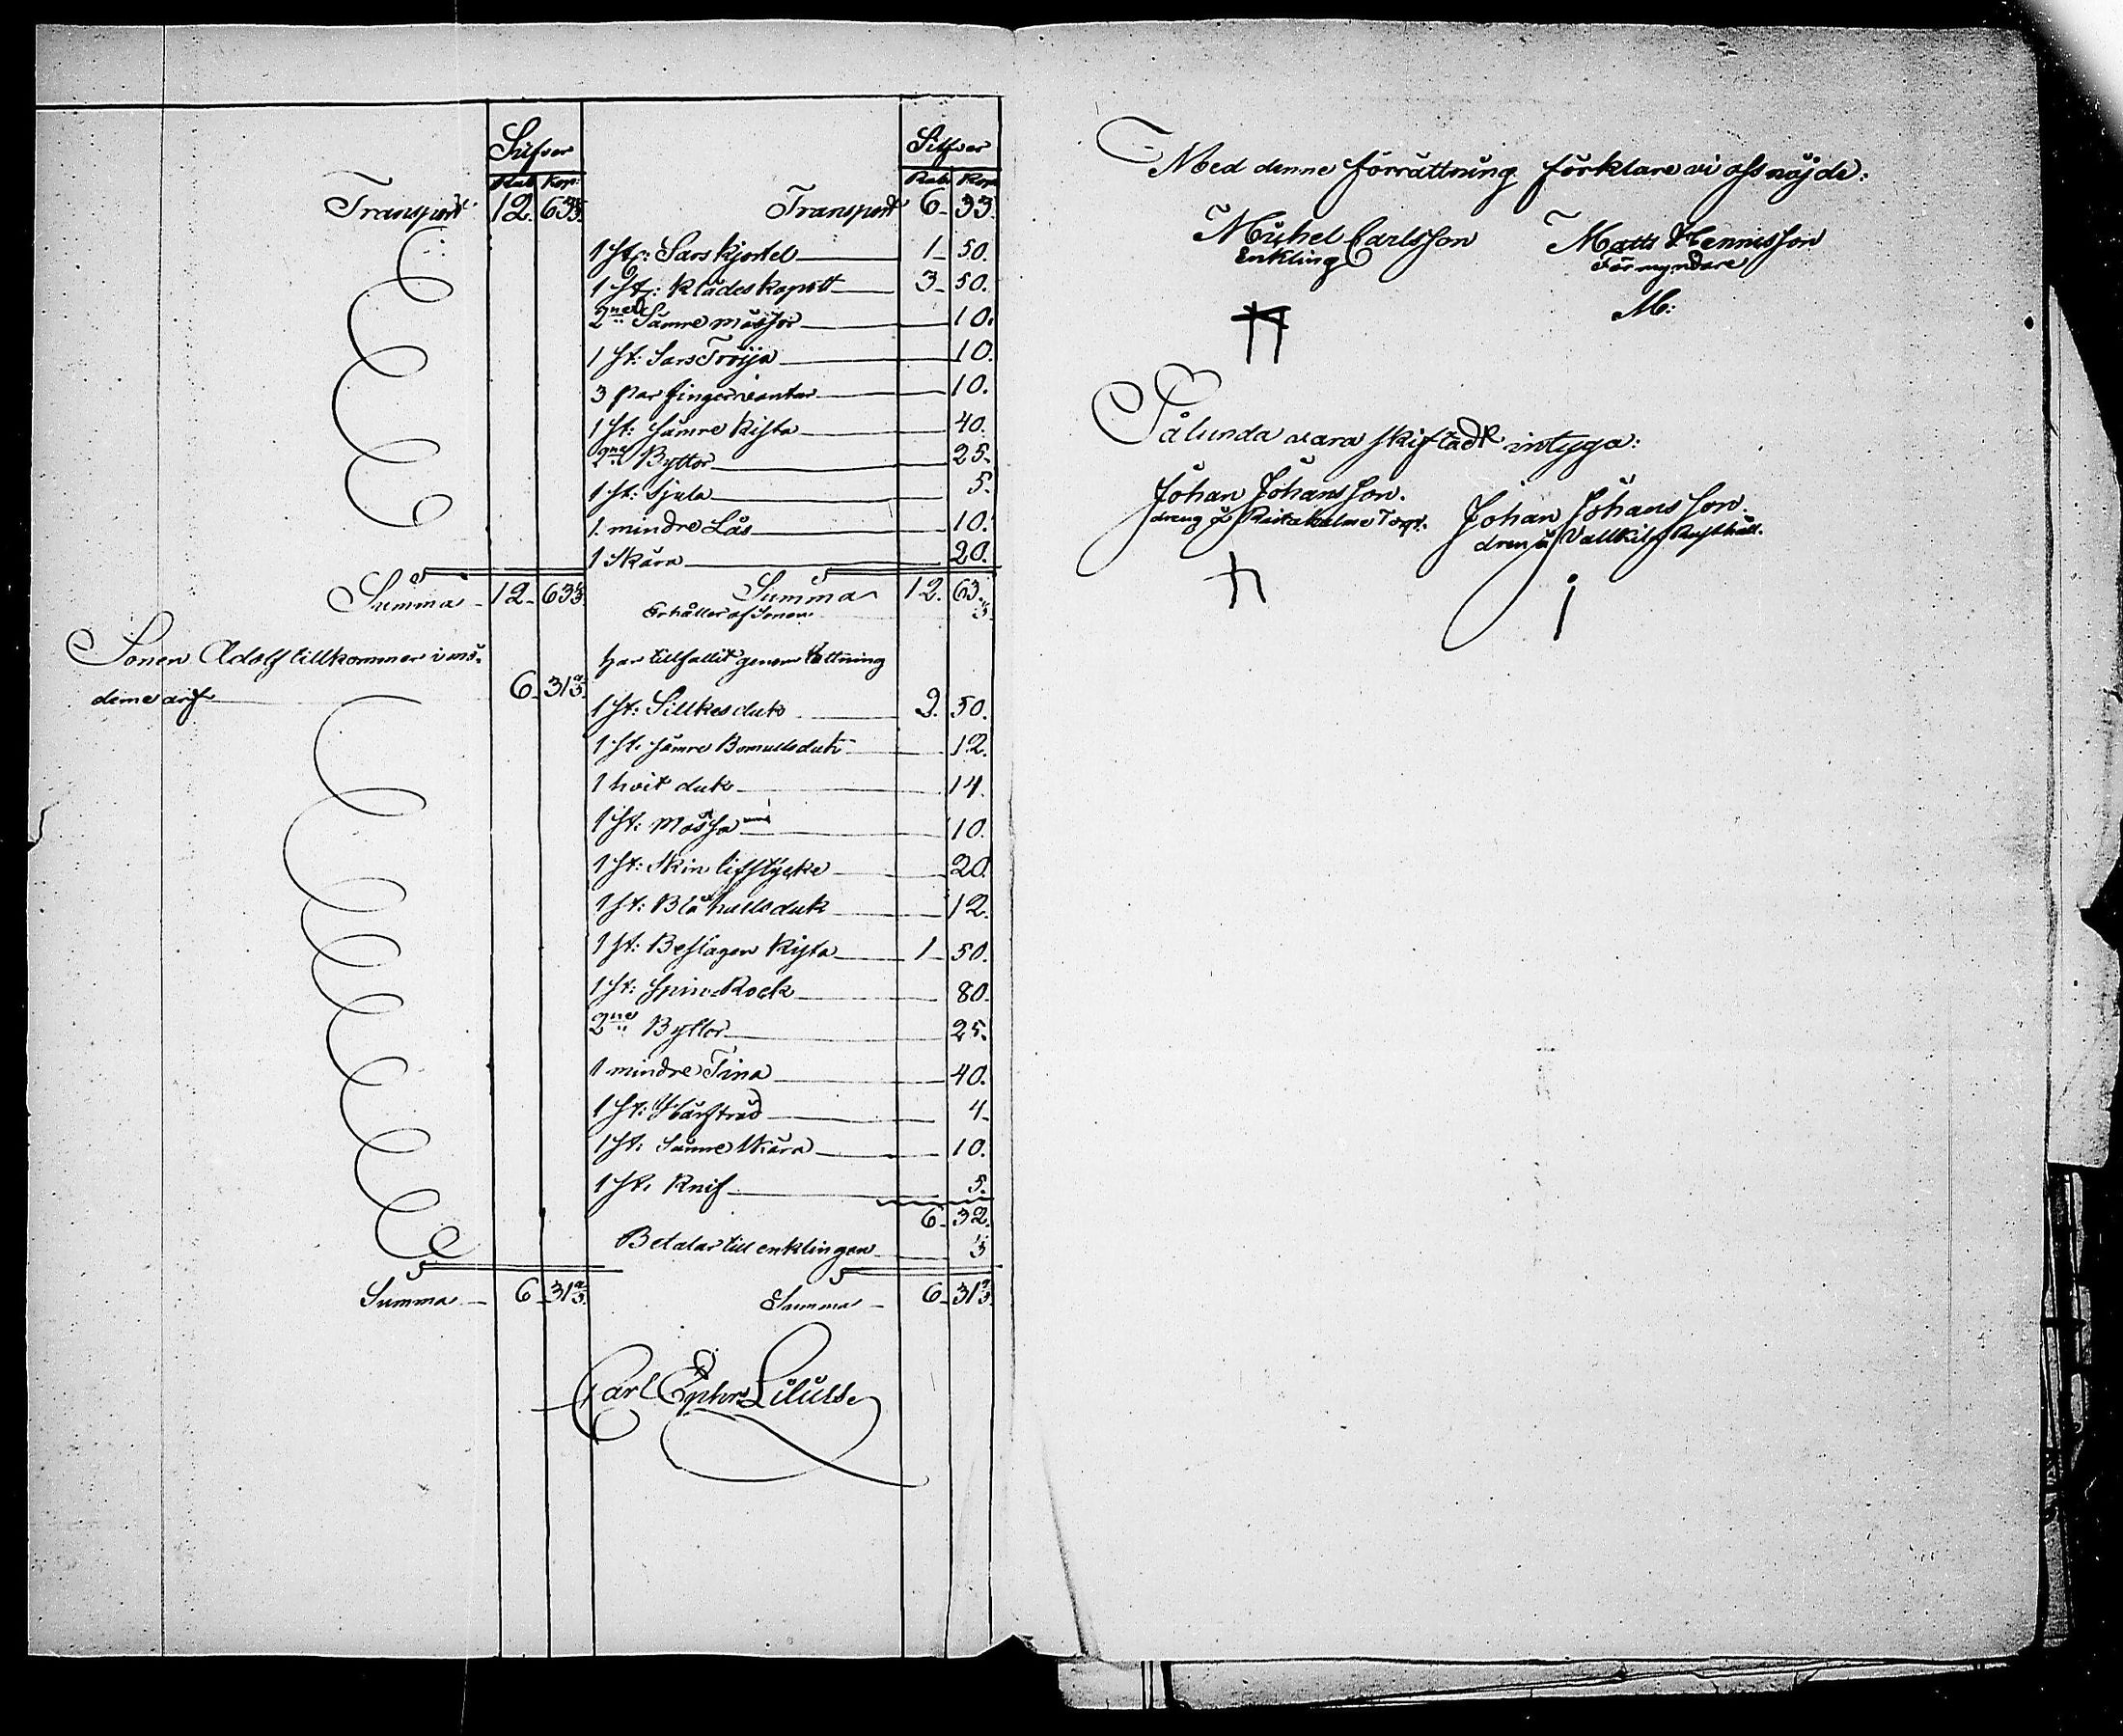 Silfver
Rub. Kop:
Transport 12. 63 1/3.
Summa 12. 63 1/3.
Sonen Adolf tillkommer i mö-
derne arf 6. 31 2/3.
Summa 6. 31 2/3.
Silfver
Rub. Kop.
Transport 6. 33.
1 st: Sars kjortel 1. 50.
1 st: Klädeskapott 3. 50.
2ne Sämre mössor 10.
1 st: Sars Tröija 10.
3 par fingervantar 10.
1 st: sämre Kista 40.
2ne Byttor 25.
1 st: 5.
1 mindre Lås 10.
1 Skära 20.
Summa 12. 63.
Erhåller af Sonen 1/3
har tillfallit genom lottning
1 st: Sillkesduk 2. 50.
1 st. sämre Bomullsduk 12.
1 hvit duk 14.
1 st: Mössa 10.
1 st: Skin lifstycke 20.
1 st: Blå hallsduk 12.
1 st: Beslagen Kista 1. 50.
1 st: Spin-Rock 80.
2ne Byttor 25.
1 mindre Tina 40.
1 st: 4.
1 st: Sämre Skära 10.
1 st. Knif 5.
6. 32.
Betalar till enklingen 1/3
Summa 6. 31 2/3.
Carl
Med denne förrättning förklare vi oss nöjde:
Michel Carlsson Matts Hennisson
Enkling Förmyndare
M:
Sålunda vara skiftadt intyga:
Johan Johansson. Johan Johansson.
dreng å Torp. dren å Rusthåll.